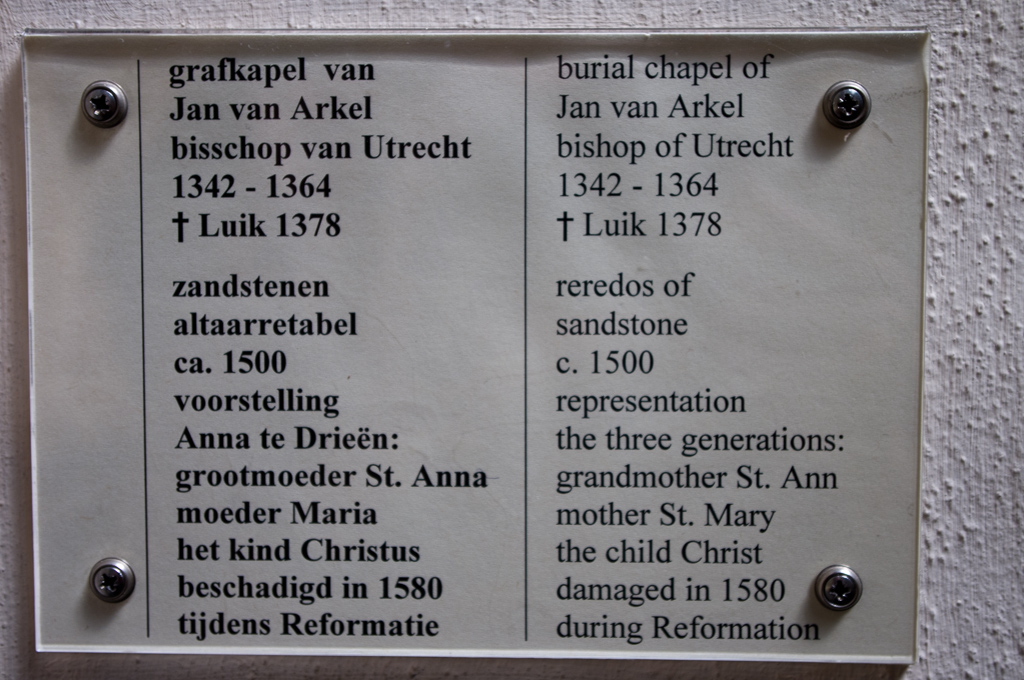 grafkapel van
Jan van Arkel
bisschop van Utrecht
1342 - 1364
† Luik 1378
zandstenen
altaarretabel
ca. 1500
voorstelling
Anna te Drieën:
grootmoeder St. Anna
moeder Maria
het kind Christus
beschadigd in 1580
tijdens Reformatie
burial chapel of
Jan van Arkel
bishop of Utrecht
1342 - 1364
† Luik 1378
reredos of
sandstone
c. 1500
representation
the three generations:
grandmother St. Ann
mother St. Mary
the child Christ
damaged in 1580
during Reformation